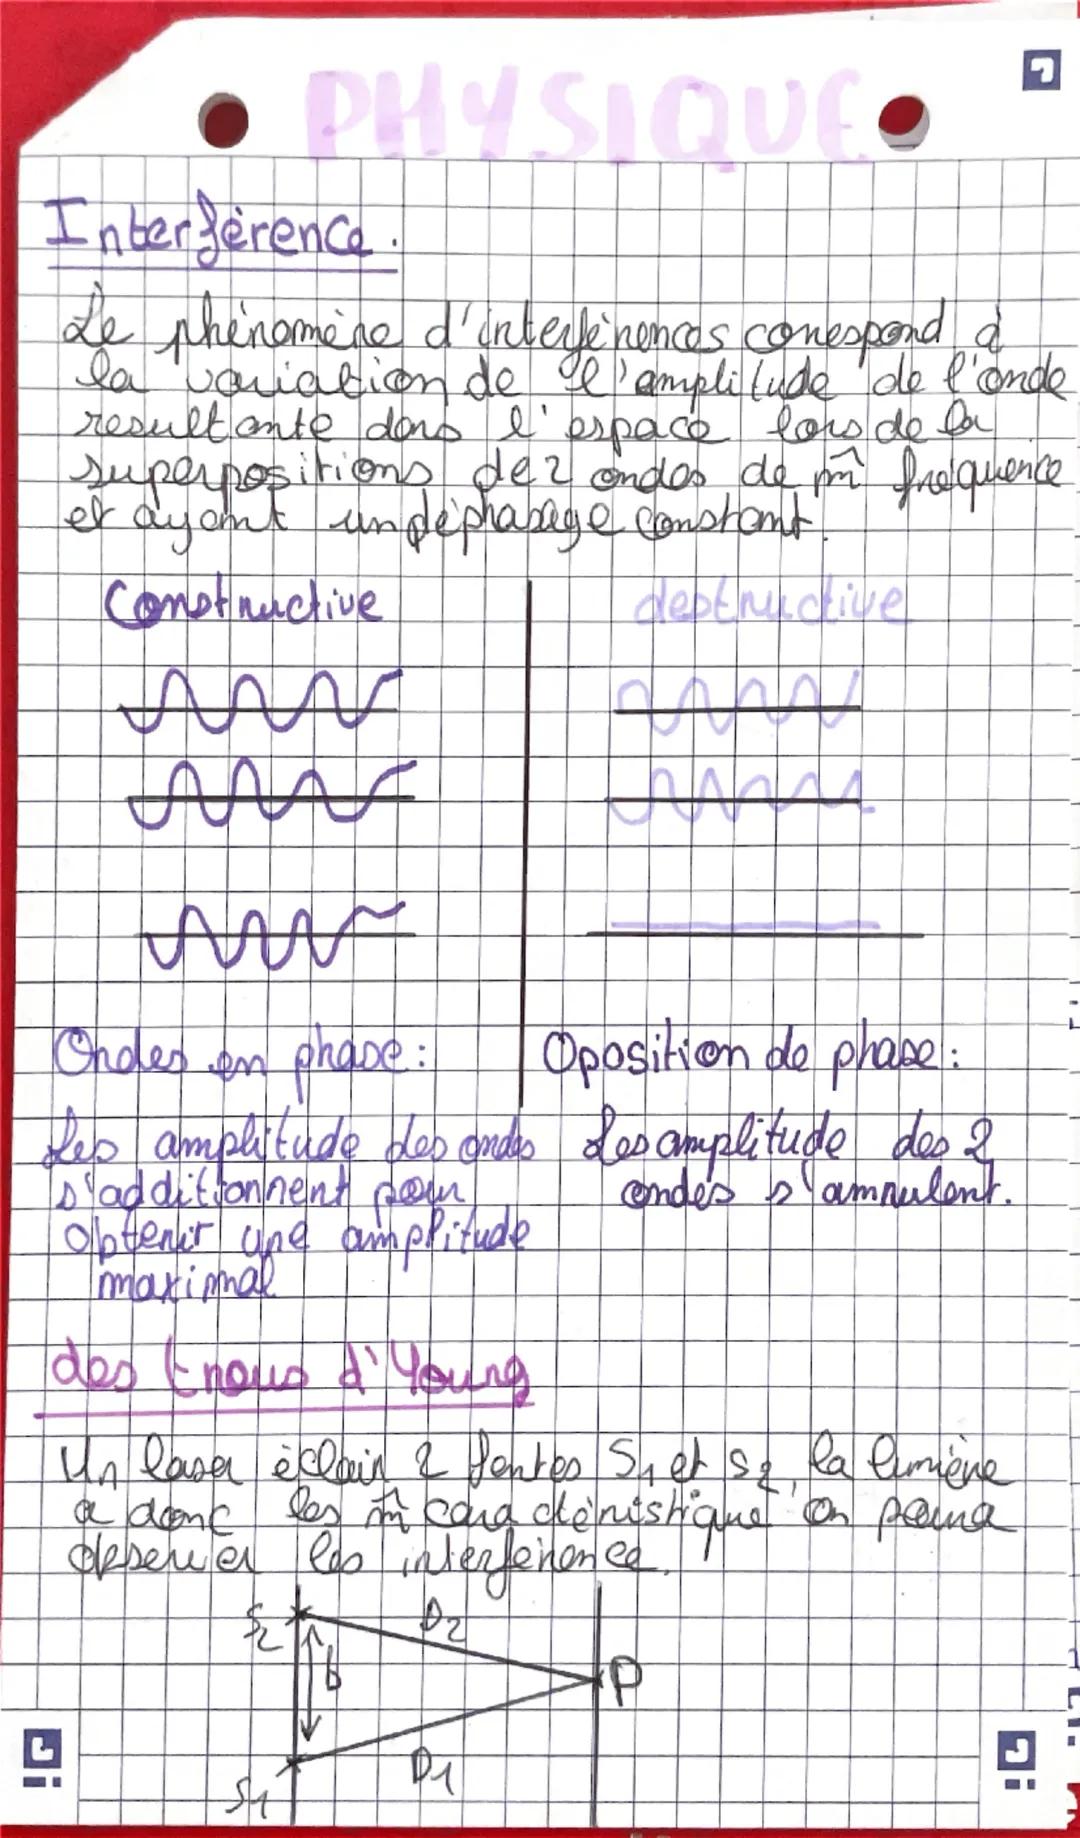 PHYSIQUE
Interférence.
Le phénomène d'interférences correspond à
la variation de l'amplitude de l'onde
resultante dans l'espace lors de la
superpositions de 2 ondes de m̂ fréquence
et ayant un déphasage constant.
Constructive
destructive
Ondes en phase :
Oposition de phase :
Les amplitude des ondes
s'additionnent pour
obtenir une amplitude
maximal
Les amplitude des 2
ondes s'amnulent.
des trous d'Young
Un laser éclair 2 fentes S1 et S2, la lumière
a donc les m̂ caractéristique on poura
observer les interférence.
S2
D2
b
P
D1
S1